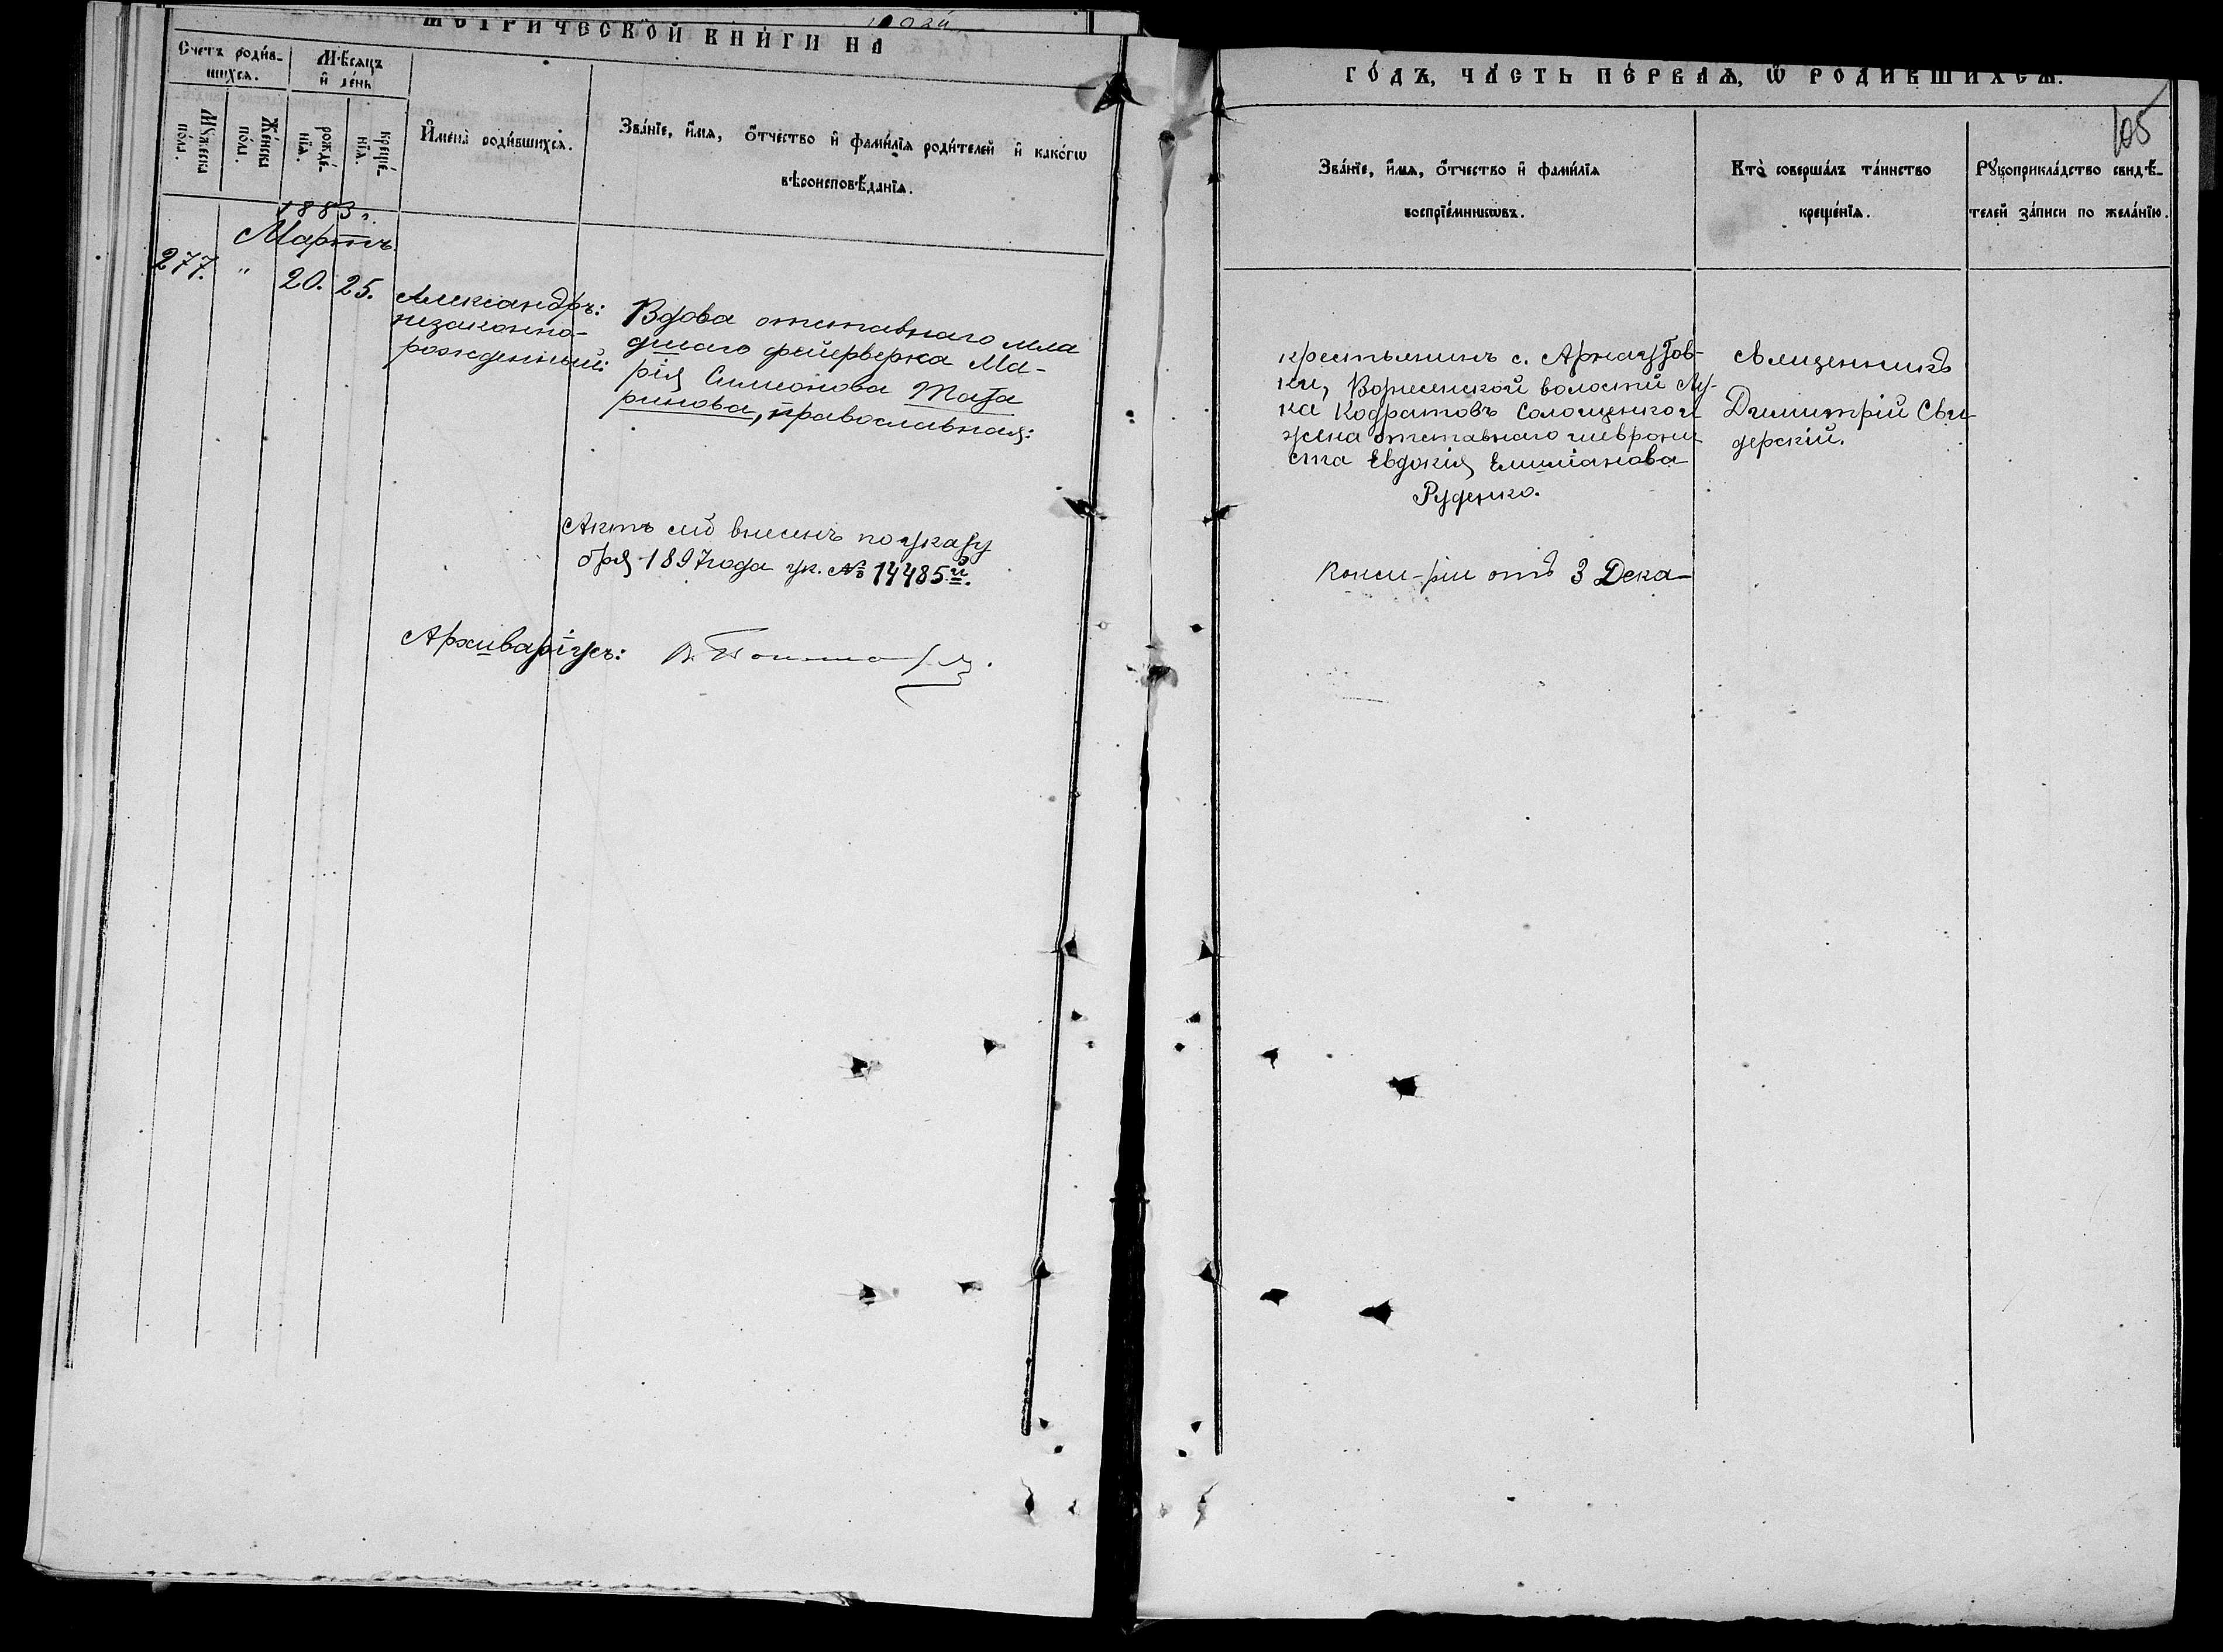 МЕТРИЧЕСКОЙ КНИ́ГИ НА
ГО́ДЪ, ЧА́СТЬ ПЕ́РВАѦ, Ѡ҆ РОДИ́ВШИХСѦ.
105
Счетъ роди́в-
шихся.
Мѣ́сяцъ
и҆ де́нь
Му́жеска
по́ла.
Же́нска
по́ла.
рожде́-
нїя.
креще́-
нїя.
И҆мена̀ роди́вшихся.
Зва́нїе, и҆́мя, ѻ҆́тчество и҆ фами́лїя роди́телей и҆ како́гѡ
вѣроисповѣ́данїя.
Зва́нїе, и҆́мя, ѻ҆́тчество и҆ фами́лїя
воспрїе́мникѡвъ.
Кто̀ соверша́лъ та́инство
креще́нїя.
Рꙋкоприкла́дство свидѣ́-
телей за́писи по жела́нїю.
1883 г.
Мартъ
277. " 20. 25.
Александръ:
незаконно-
рожденный:
Вдова отставнаго мла
дшаго фейерверка Ма-
рія Симеонова Тата
ринова, православная:
крестьянинъ с. Арнаутов-
ки, Вознесенской волости Лу-
ка Кодратовъ Солощенко и
жена отставнаго шеврони
ста Евдокія Емиліанова
Руденко.
Священникъ
Димитрій Сви-
дерскій.
Актъ сей внесенъ по указу
Конси-ріи отъ 3 Дека-
бря 1897 года ук. № 14485й.
Архиваріусъ: